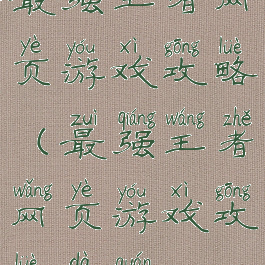 最强王者网
yè yóu xì gōng lüè
页游戏攻略
zuì qiáng wáng zhě
（最强王者
wǎng yè yóu xì gōng
网页游戏攻
lüè dà quán